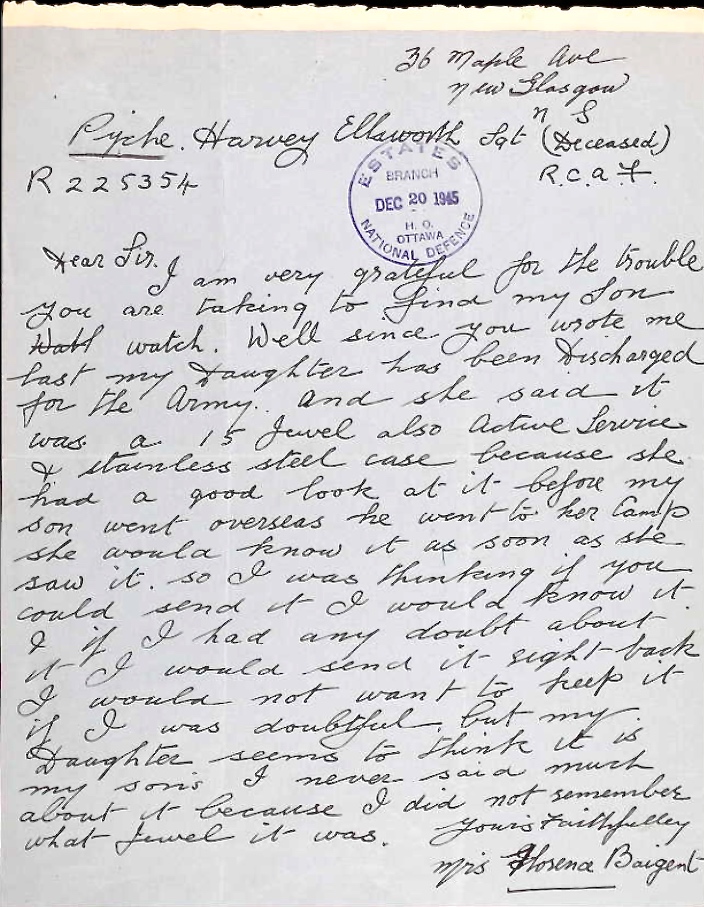 36 Maple Ave
New Glasgow
N S
Pyche. Harvey Ellsworth Sgt (Deceased)
R 225354
R.C.A.F.
ESTATES
BRANCH
DEC 20 1945
H. O.
OTTAWA
NATIONAL DEFENCE
Dear Sir.
I am very grateful for the trouble
you are taking to find my Son
watch. Well since you wrote me
last my Daughter has been Discharged
for the Army. And she said it
was a 15 Jewel also Active Service
& stainless steel case because she
had a good look at it before my
son went overseas he went to her Camp
she would know it as soon as she
saw it. so I was thinking if you
could send it I would know it
& if I had any doubt about
it I would send it right back
I would not want to keep it
if I was doubtful. but my
Daughter seems to think it is
my sons I never said much
about it because I did not remember
what Jewel it was. Yours Faithfulley
Mrs Florence Baigent